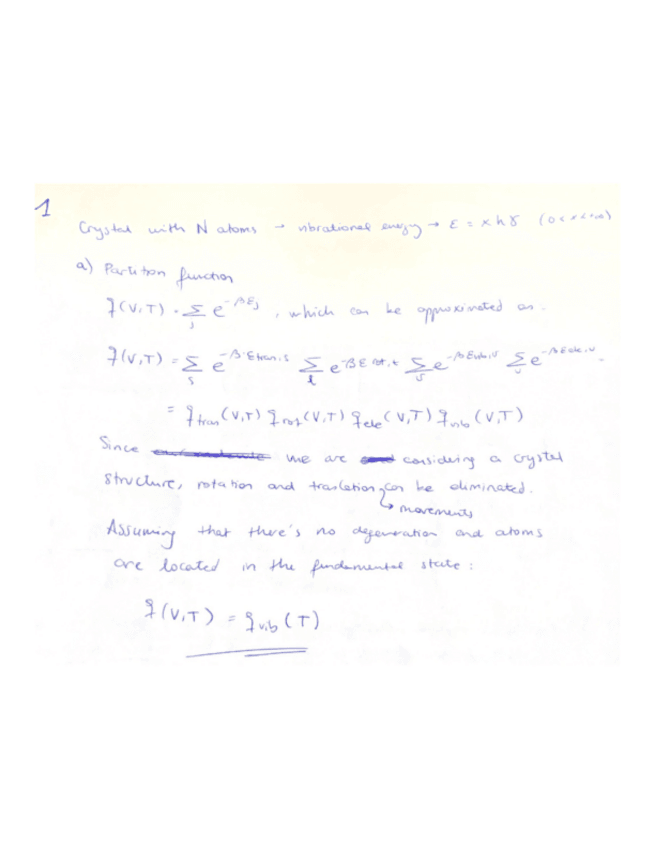 1
Crystal with N atoms → vibrational energy → ε = x h γ (0 < x < +∞)
a) Partition function
q(V,T) = Σ_j e^{-βEj}, which can be approximated as.
q(V,T) = Σ_s e^{-β·Etran,s} Σ_t e^{-βE rot,t} Σ_v e^{-βEvib,v} Σ_v e^{-βEele,v}
= q_tran(V,T) q_rot(V,T) q_ele(V,T) q_vib(V,T)
Since we are considering a crystal
structure, rotation and traslation can be eliminated.
↳ movements
Assuming that there's no degeneration and atoms
are located in the fundamental state:
q(V,T) = q_vib(T)